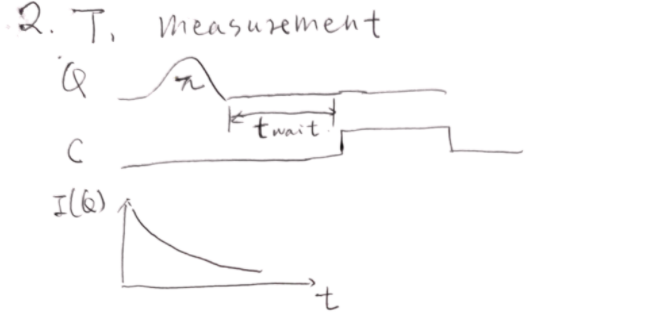 2. T₁ measurement
Q π
t wait
C
I(Q)
t